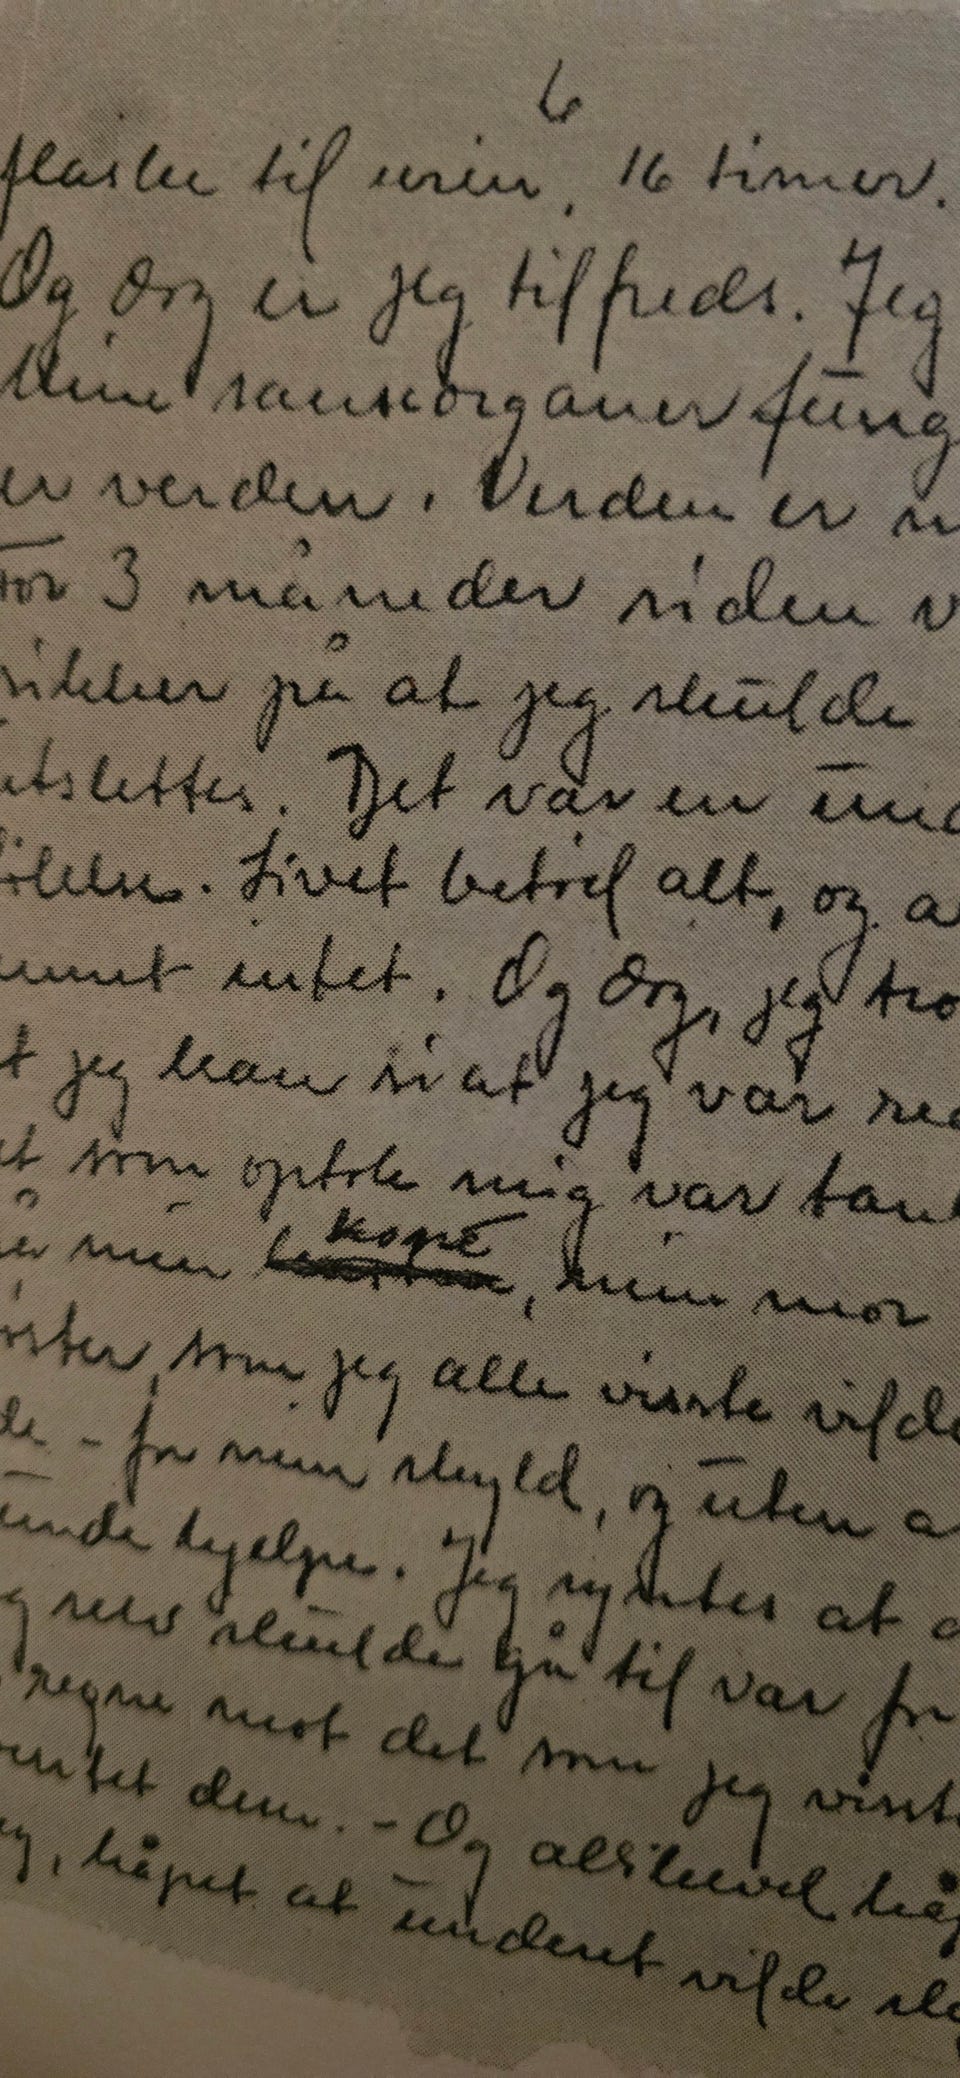 6
flaske til urin, 16 timer.
Og dog er jeg tilfreds. Jeg
Mine sanseorganer fung
er verden. Verden er
For 3 måneder siden v
sikker på at jeg skulde
utslettes. Det var en und
følelse. Livet betød alt, og a
intet. Og dog, jeg tro
t jeg kan si at jeg var
et som optok mig var tan
på min kone, min mor
øster, som jeg alle visste vilde
de - for min skyld, og uten a
unde hjelpe. Jeg syntes at
g selv skulde gå til var for
regne mot det som jeg visst
ventet dem. - Og allikevel håp
eg, håpet at underet vilde